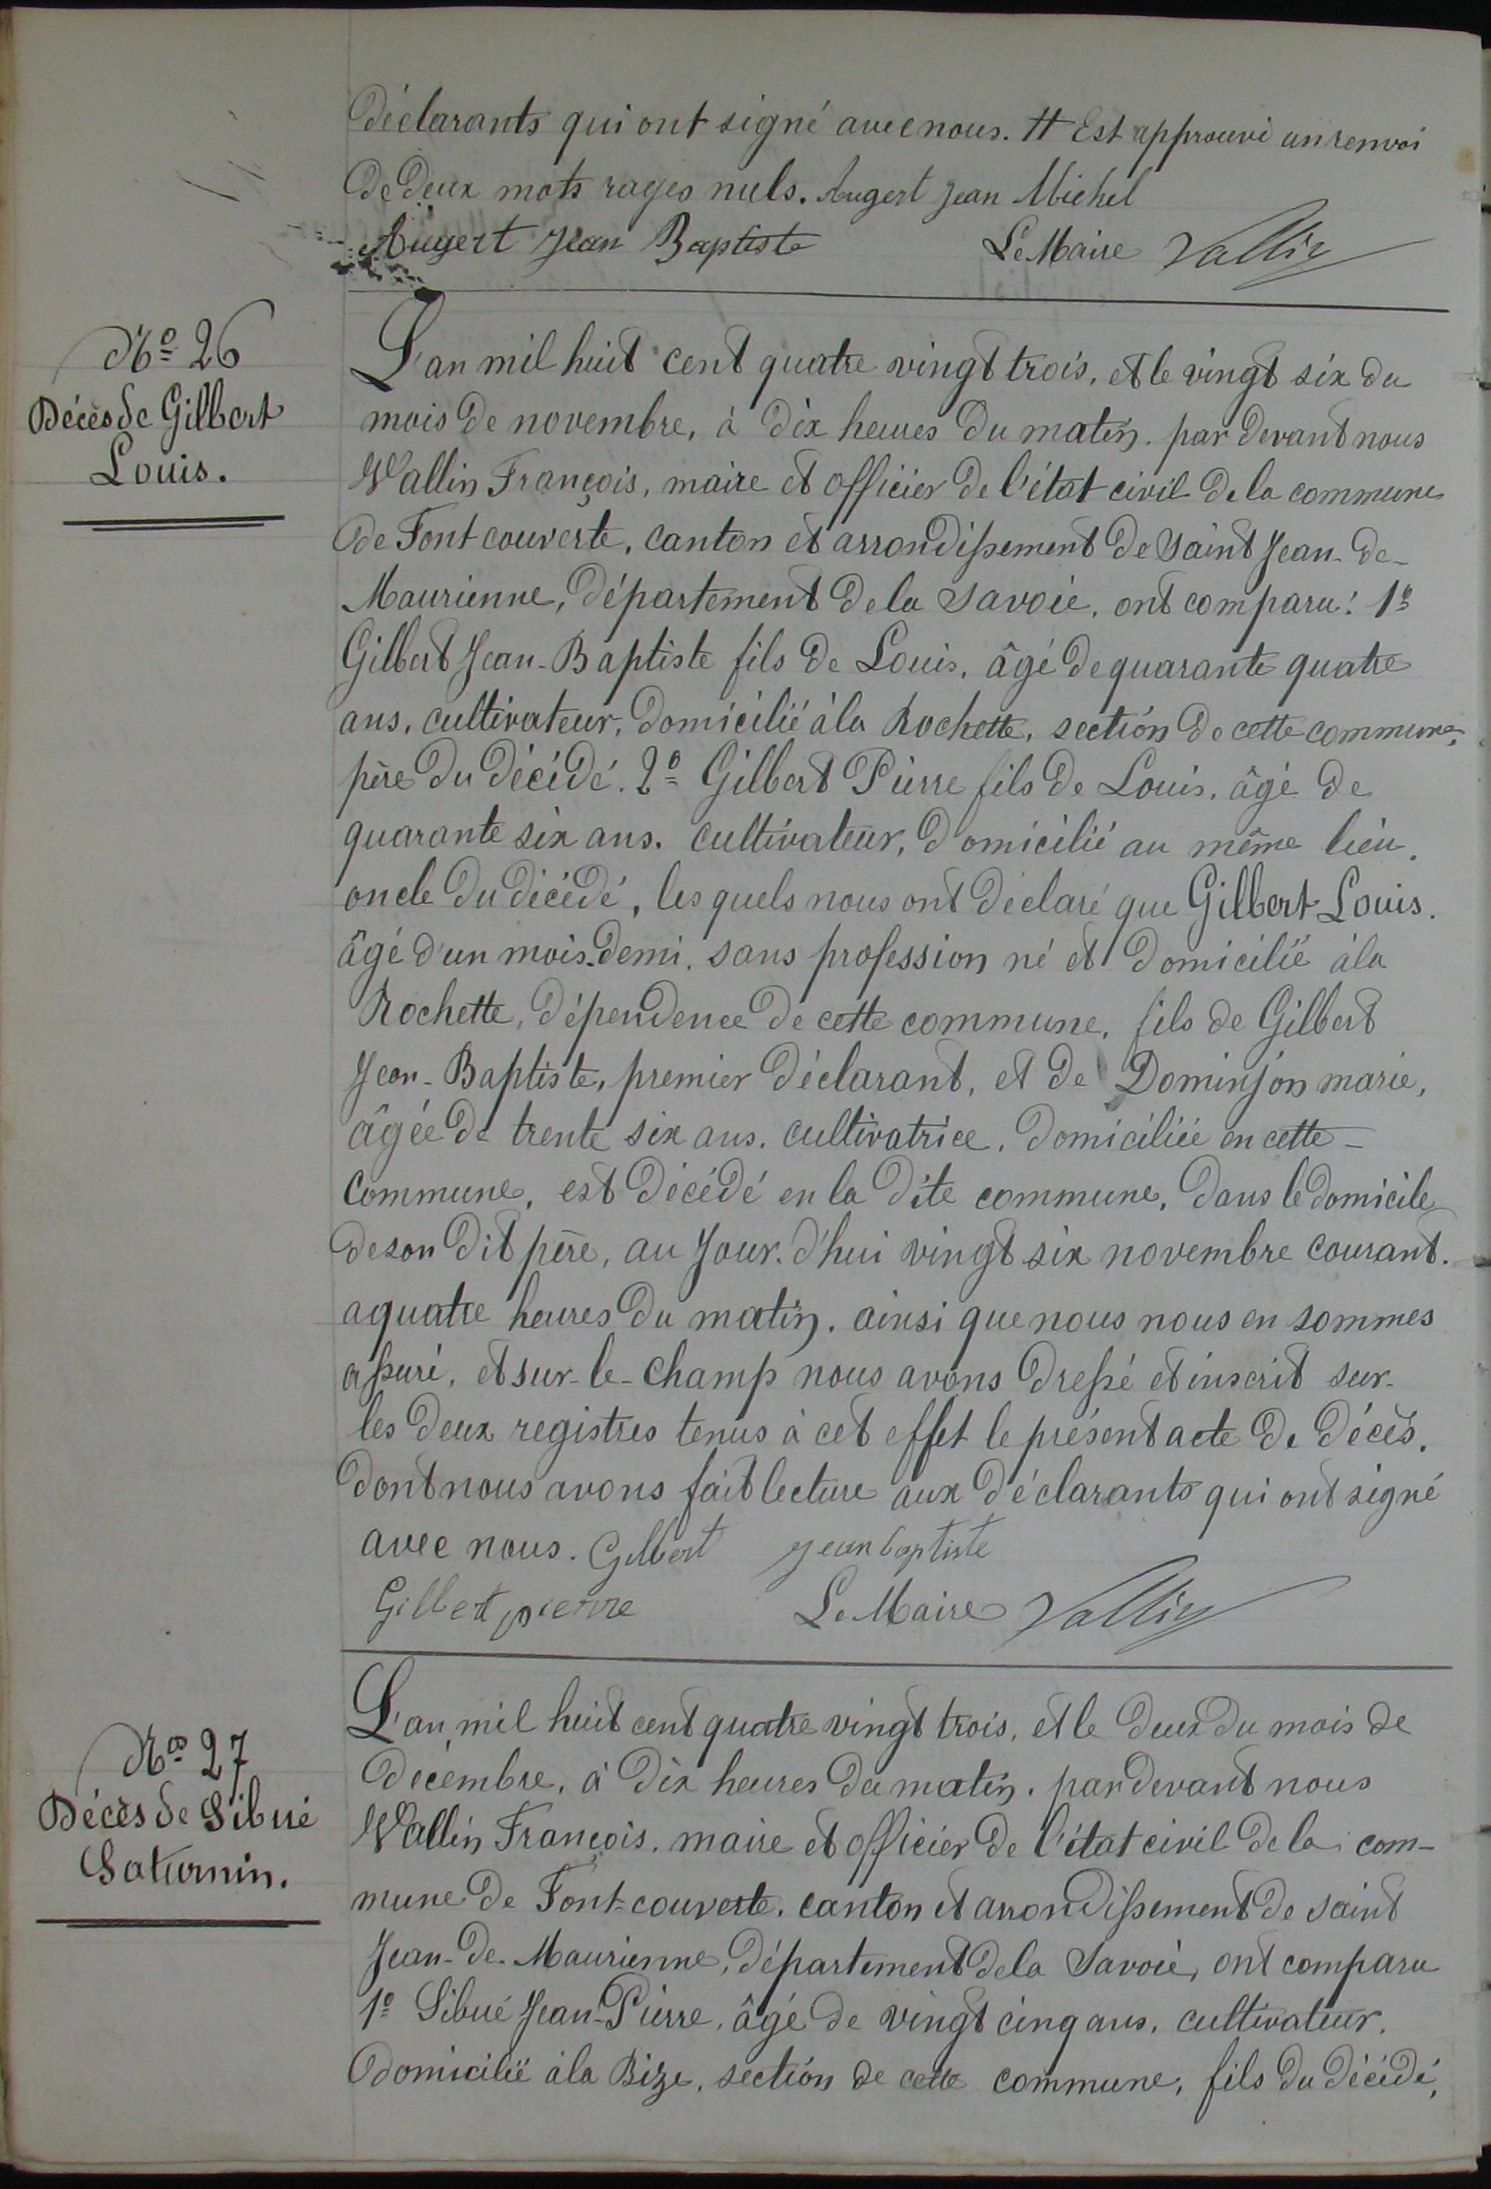 déclarants qui ont signé avec nous. # Est approuvé un renvoi
de deux mots rayés nuls. Augert Jean Michel
Augert Jean Baptiste Le Maire Vallin
Nº 26
Décès de Gilbert
Louis.
L'an mil huit cent quatre vingt trois, et le vingt six du
mois de novembre, à dix heures du matin. par devant nous
Vallin François, maire et officier de l'état civil de la commune
de Font couverte, canton et arrondissement de Saint Jean-de-
Maurienne, département de la Savoie, ont comparu: 1º
Gilbert Jean-Baptiste fils de Louis, âgé de quarante quatre
ans, cultivateur, domicilié à la Rochette, section de cette commune,
père du décédé. 2º Gilbert Pierre fils de Louis, âgé de
quarante six ans. cultivateur, domicilié au même lieu.
oncle du décédé, les quels nous ont déclaré que Gilbert Louis.
âgé d'un mois-demi. sans profession né et domicilié à la
Rochette, dépendence de cette commune, fils de Gilbert
Jean-Baptiste, premier déclarant, et de Dominjon marie,
âgée de trente six ans. cultivatrice. domiciliée en cette-
commune, est décédé en la dite commune, dans le domicile
de son dit père, au jour-d'hui vingt six novembre courant.
a quatre heures du matin. ainsi que nous nous en sommes
assuré, et sur-le-champ nous avons dressé et inscrit sur-
les deux registres tenus à cet effet le présent acte de décès.
dont nous avons fait lecture aux déclarants qui ont signé
avec nous. Gilbert jean baptiste
Gilbert pierre Le Maire Vallin
Nº 27
Décès de Sibué
Saturnin.
L'an mil huit cent quatre vingt trois, et le deux du mois de
décembre, à dix heures du matin. par devant nous
Vallin François, maire et officier de l'état civil de la com-
mune de Font-couverte, canton et arrondissement de saint
Jean-de-Maurienne, département de la Savoie, ont comparu
1º Sibué Jean-Pierre, âgé de vingt cinq ans, cultivateur.
domicilié à la Bize, section de cette commune, fils du décédé,